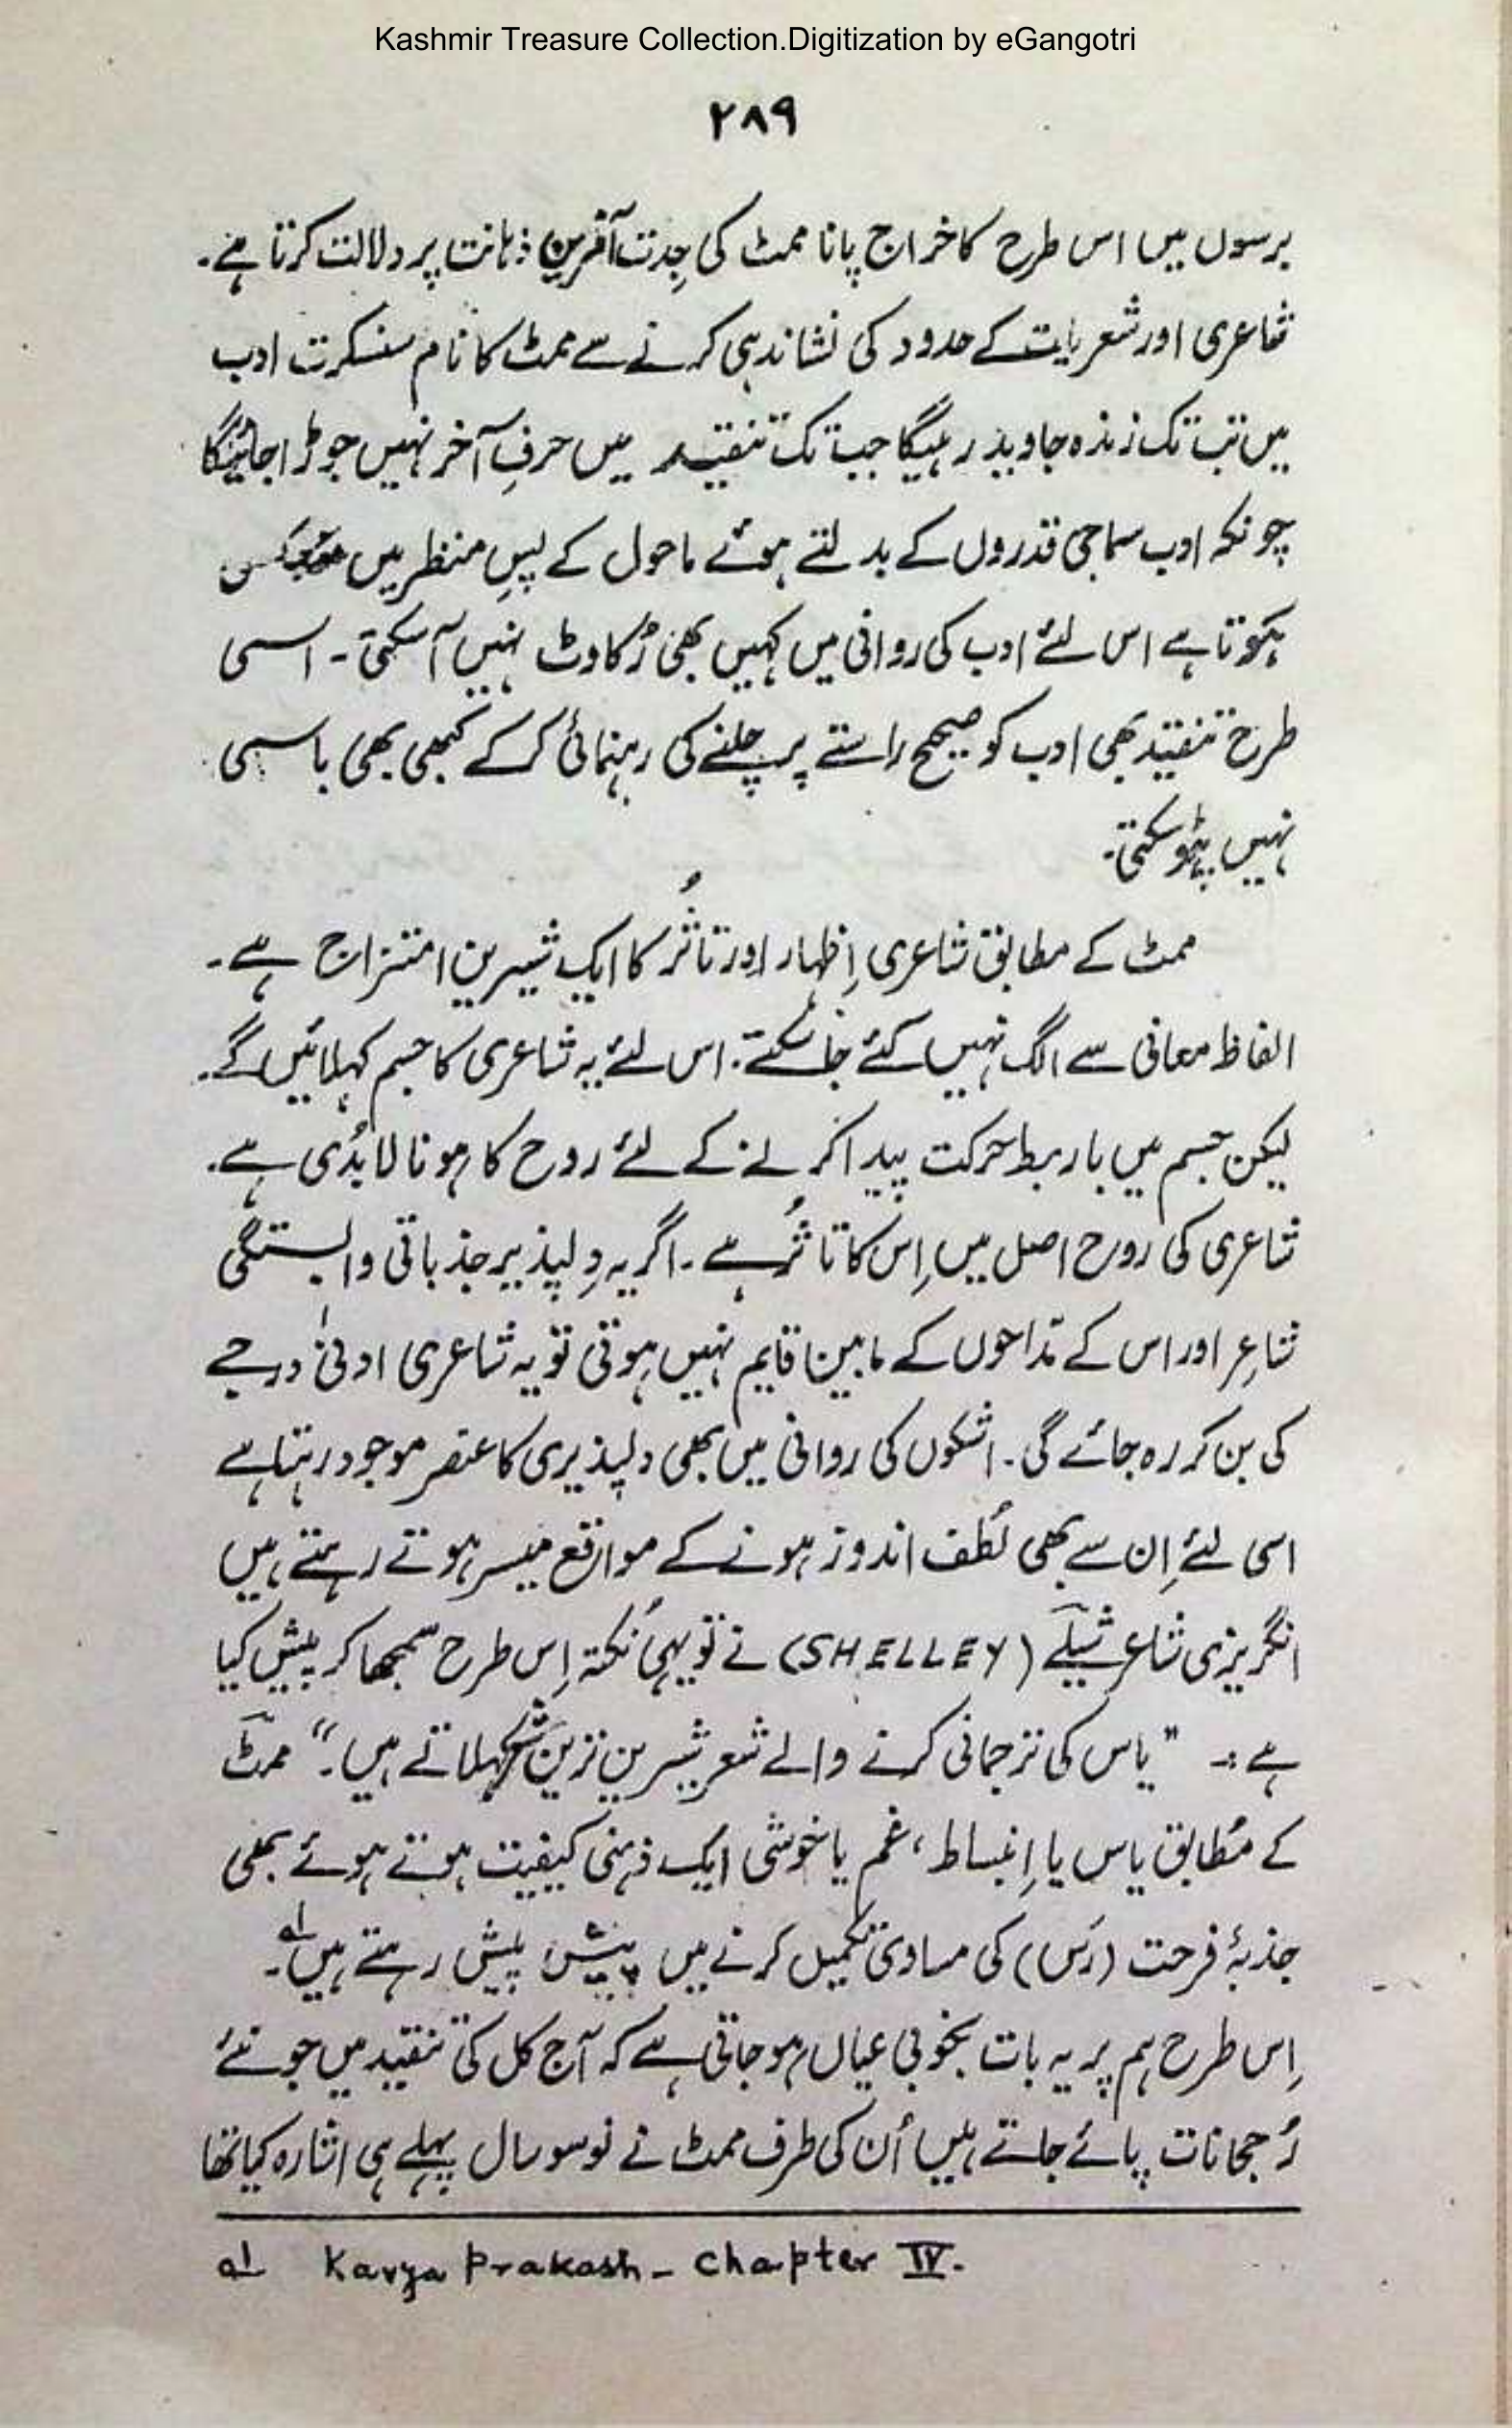 Kashmir Treasure Collection.Digitization by eGangotri
۲۸۹
برسوں میں اس طرح کا خراج پانا ممٹ کی جِدت آفرین ذہانت پر دلالت کرتا ہے۔
شاعری اور شعریات کے حدود کی نشاندہی کرنے سے ممٹ کا نام سنسکرت ادب
میں تب تک زندہ جاوید رہیگا جب تک تنقید میں حرفِ آخر نہیں جوڑا جائیگا
چونکہ ادب سماجی قدروں کے بدلتے ہوئے ماحول کے پسِ منظر میں منعکس
ہوتا ہے اس لئے ادب کی روانی میں کہیں بھی رُکاوٹ نہیں آسکتی۔ اسی
طرح تنقید بھی ادب کو صحیح راستے پر چلنے کی رہنمائی کرکے کبھی بھی باسی
نہیں ہوسکتی۔
ممٹ کے مطابق شاعری اِظہار اور تاثُر کا ایک شیرین امتزاج ہے۔
الفاظ معانی سے الگ نہیں کئے جاسکتے۔ اس لئے یہ شاعری کا جسم کہلائیں گے۔
لیکن جسم میں باربط حرکت پیدا کرنے کے لئے روح کا ہونا لابُدی ہے۔
شاعری کی روح اصل میں اِس کا تاثُر ہے۔ اگر یہ دِلپذیر جذباتی وابستگی
شاعِر اور اس کے مداحوں کے مابین قایم نہیں ہوتی تو یہ شاعری ادنیٰ درجے
کی بن کر رہ جائے گی۔ اشکوں کی روانی میں بھی دلپذیری کا عنصر موجود رہتا ہے
اسی لئے اِن سے بھی لُطف اندوز ہونے کے مواقع میسر ہوتے رہتے ہیں
انگریزی شاعر شیلے (SHELLEY) نے تو یہی نُکتہ اِس طرح سمجھا کر پیش کیا
ہے :۔ "یاس کی ترجمانی کرنے والے شعر شیرین ترین شعر کہلاتے ہیں۔" ممٹ
کے مُطابق یاس یا اِنبساط، غم یا خوشی ایک ذہنی کیفیت ہوتے ہوئے بھی
جذبۂ فرحت (رَس) کی مساوی تکمیل کرنے میں پیش پیش رہتے ہیں۔ ؎۱
اِس طرح ہم پر یہ بات بخوبی عیاں ہوجاتی ہے کہ آج کل کی تنقید میں جو نئے
رُجحانات پائے جاتے ہیں اُن کی طرف ممٹ نے نو سو سال پہلے ہی اشارہ کیا تھا
؎۱ Kavya Prakash – Chapter IV.